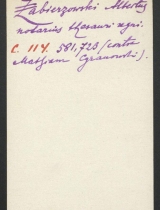 Zabierzowski Albertus
notarius thesauri regni.
C. 114. 581, 723 (contra
Mathiam Czranowski).